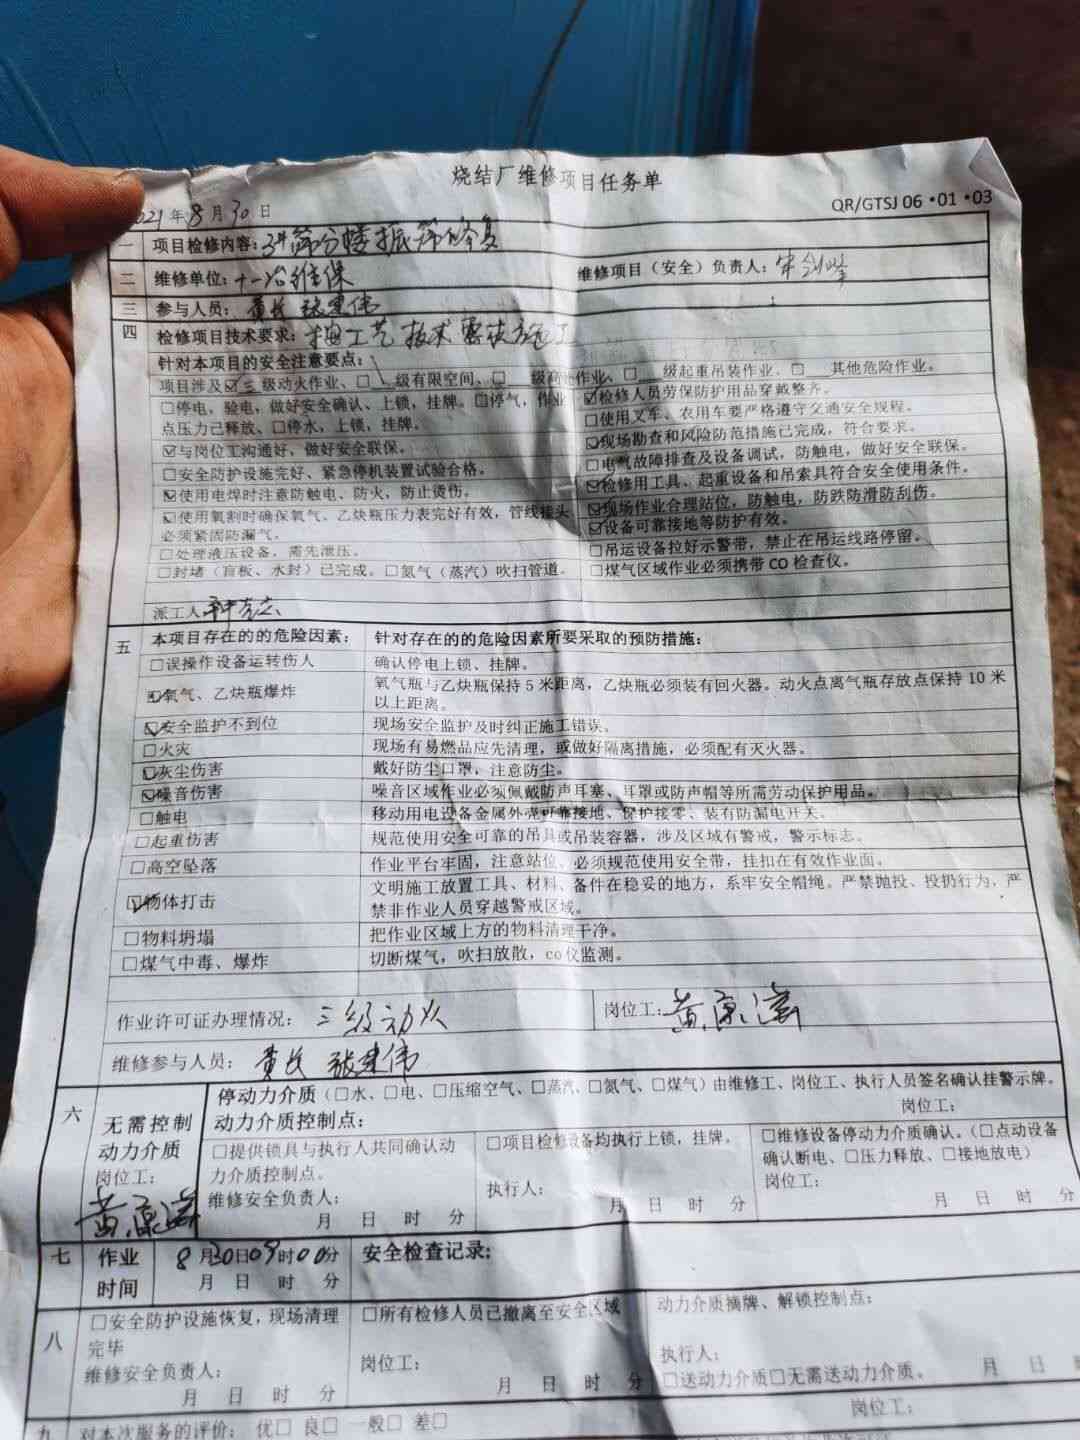 烧结厂维修项目任务单
QR/GTSJ 06·01·03
2021年8月30日
一 项目检修内容：3#筛分楼振筛修复
二 维修单位：十一冶维保 维修项目（安全）负责人：
三 参与人员：黄长 张建伟
四 检修项目技术要求：按工艺技术要求施工
针对本项目的安全注意要点：
项目涉及☑三级动火作业、□ 级有限空间、□ 级高处作业、□ 级起重吊装作业、□ 其他危险作业。
□停电，验电，做好安全确认、上锁，挂牌。□停气，作业
点压力已释放、□停水，上锁，挂牌。
☑与岗位工沟通好，做好安全联保。
□安全防护设施完好、紧急停机装置试验合格。
☑使用电焊时注意防触电、防火，防止烫伤。
☑使用氧割时确保氧气、乙炔瓶压力表完好有效，管线接头
必须紧固防漏气。
□处理液压设备，需先泄压。
□封堵（盲板、水封）已完成。□氮气（蒸汽）吹扫管道。
☑检修人员劳保防护用品穿戴整齐。
□使用叉车、农用车要严格遵守交通安全规程。
☑现场勘查和风险防范措施已完成，符合要求。
□电气故障排查及设备调试，防触电，做好安全联保。
☑检修用工具、起重设备和吊索具符合安全使用条件。
☑现场作业合理站位，防触电，防跌防滑防刮伤。
☑设备可靠接地等防护有效。
□吊运设备拉好示警带，禁止在吊运线路停留。
□煤气区域作业必须携带CO检查仪。
派工人
五 本项目存在的的危险因素： 针对存在的的危险因素所要采取的预防措施：
□误操作设备运转伤人 确认停电上锁、挂牌。
☑氧气、乙炔瓶爆炸 氧气瓶与乙炔瓶保持5米距离，乙炔瓶必须装有回火器。动火点离气瓶存放点保持10米
以上距离。
☑安全监护不到位 现场安全监护及时纠正施工错误。
□火灾 现场有易燃品应先清理，或做好隔离措施，必须配有灭火器。
☑灰尘伤害 戴好防尘口罩，注意防尘。
☑噪音伤害 噪音区域作业必须佩戴防声耳塞、耳罩或防声帽等所需劳动保护用品。
□触电 移动用电设备金属外壳可靠接地、保护接零、装有防漏电开关。
□起重伤害 规范使用安全可靠的吊具或吊装容器，涉及区域有警戒，警示标志。
□高空坠落 作业平台牢固，注意站位、必须规范使用安全带，挂扣在有效作业面。
☑物体打击 文明施工放置工具、材料、备件在稳妥的地方，系牢安全帽绳。严禁抛投、投扔行为，严
禁非作业人员穿越警戒区域。
□物料坍塌 把作业区域上方的物料清理干净。
□煤气中毒、爆炸 切断煤气，吹扫放散，co仪监测。
作业许可证办理情况：三级动火 岗位工：
维修参与人员：黄长 张建伟
六 无需控制
动力介质
岗位工：
停动力介质（□水、□电、□压缩空气、□蒸汽、□氮气、□煤气）由维修工、岗位工、执行人员签名确认挂警示牌。
动力介质控制点： 岗位工：
□提供锁具与执行人共同确认动
力介质控制点。
维修安全负责人：
月 日 时 分
□项目检修设备均执行上锁，挂牌。
执行人：
月 日 时 分
□维修设备停动力介质确认。（□点动设备
确认断电、□压力释放、□接地放电）
岗位工：
月 日 时 分
七 作业
时间
8月30日09时00分
月 日 时 分
安全检查记录：
八 □安全防护设施恢复，现场清理
完毕
维修安全负责人：
月 日 时 分
□所有检修人员已撤离至安全区域
岗位工：
月 日 时 分
动力介质摘牌、解锁控制点：
执行人：
□送动力介质□无需送动力介质。 月 日
岗位工：
九 对本次服务的评价： 优□ 良□ 一般□ 差□